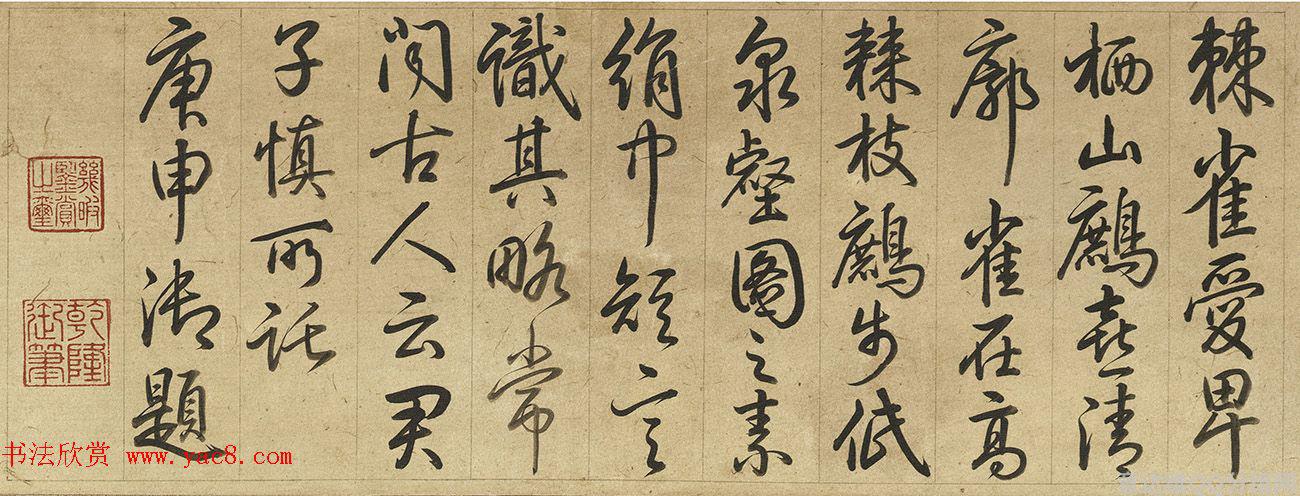 棘雀愛卑
栖山鷓喜清
廓雀在高
棘枝鷓步低
泉壑圖之素
絹巾短言
識其略常
聞古人云君
子慎所託
庚申御題
幾暇鑒賞之璽
乾隆御筆
书法欣赏 www.yac8.com